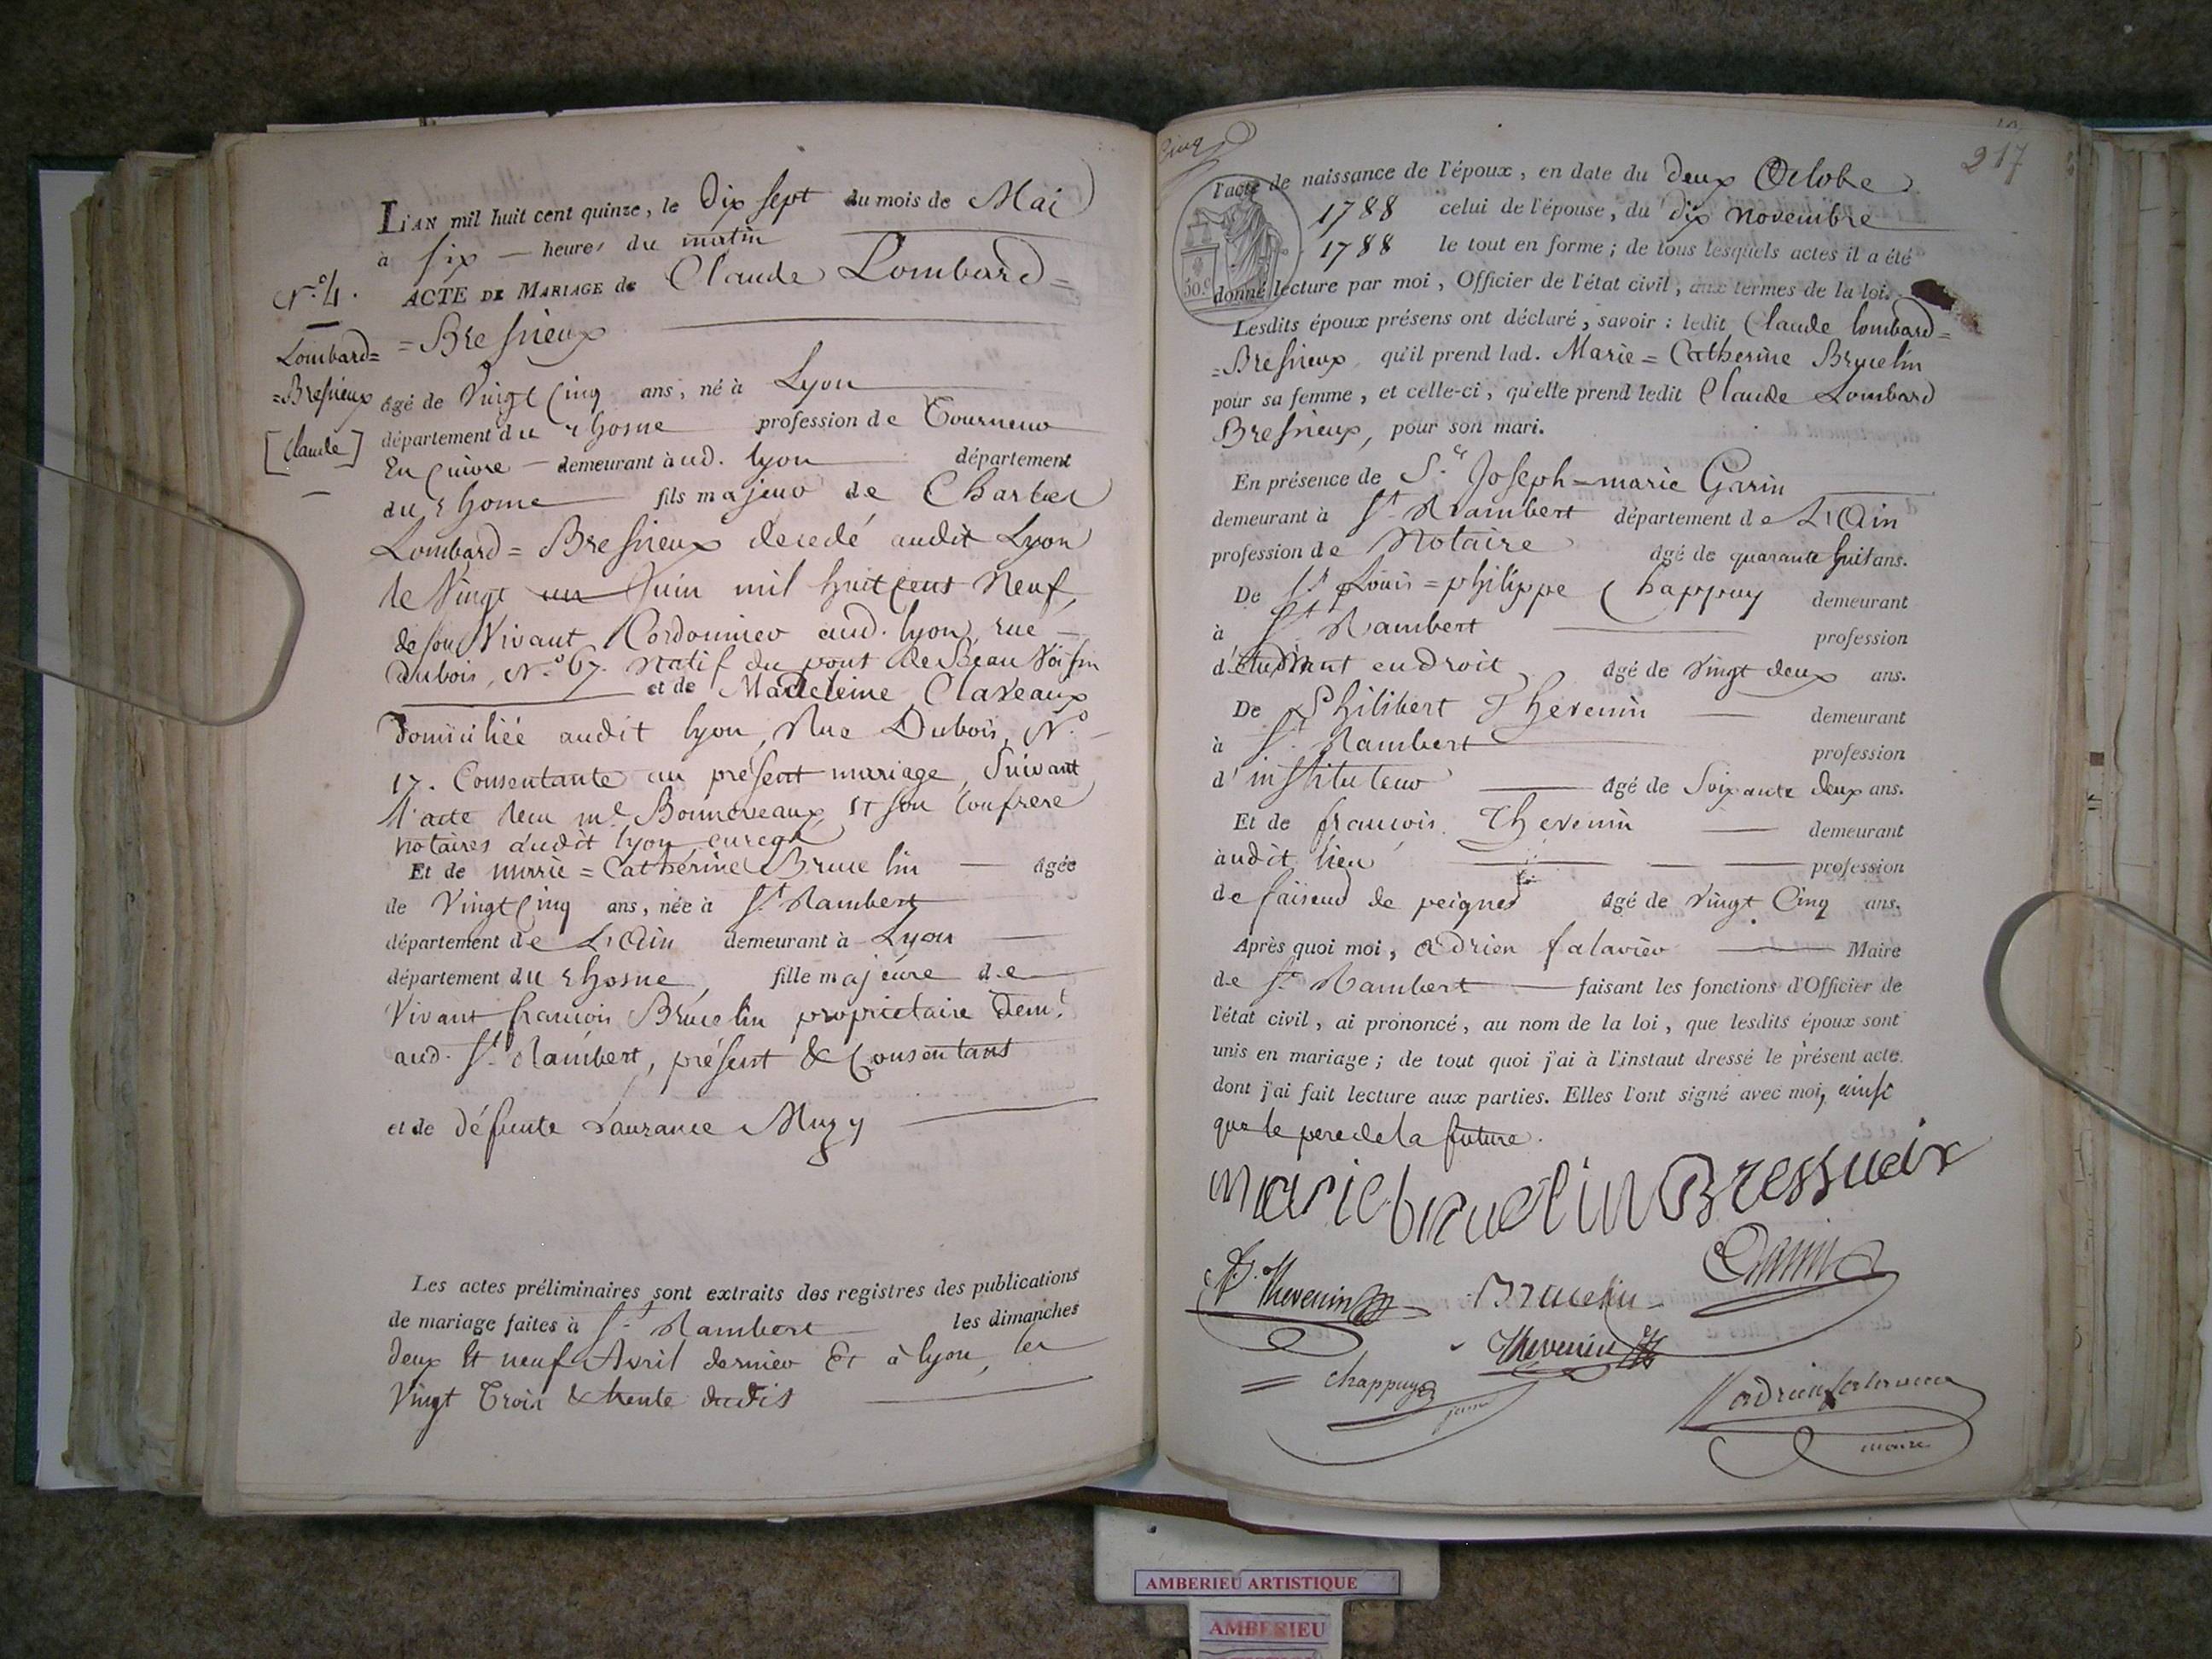 L'AN mil huit cent quinze, le Dix sept du mois de Mai
à six heures du matin
N.º 4. ACTE DE MARIAGE de Claude Lombard=
=Bresnieux
Lombard=
=Bresnieux
[Claude]
agé de Vingt Cinq ans, né à Lyon
département du rhosne profession de Tourneur
En Cuivre demeurant aud. lyon département
du rhome fils majeur de Charles
Lombard=Bresnieux decedé audit Lyon
le Vingt un Juin mil huit cent Neuf,
de son Vivant Cordonnier aud. lyon, rue
dubois, N.º 67. natif du pont de Beau Voisin
et de Madeleine Claveaux
Domiciliée audit lyon, Rue Dubois, N.º
17. Consentante au présent mariage, Suivant
l'acte Recu me. Bonnevaux et son Confrere
notaires audit lyon
Et de marie=Catherine Bruelin agée
de Vingt Cinq ans, née à St. Rambert
département de L'Ain demeurant à Lyon
département du rhosne, fille majeure de
Vivant francois Bruelin proprietaire Demt.
aud. St. Rambert, présent & Consentant
et de défunte Laurance Muzy
Les actes préliminaires sont extraits des registres des publications
de mariage faites à St. Rambert les dimanches
deux et neuf Avril dernier Et à lyon, les
Vingt Trois & trente dudit
Cinq
217
l'acte de naissance de l'époux, en date du deux Octobre
1788 celui de l'épouse, du dix novembre
1788 le tout en forme; de tous lesquels actes il a été
donné lecture par moi, Officier de l'état civil, aux termes de la loi.
50.c
Lesdits époux présens ont déclaré, savoir: ledit Claude lombard=
=Bresnieux qu'il prend lad. Marie=Catherine Bruelin
pour sa femme, et celle-ci, qu'elle prend ledit Claude Lombard
Bresnieux, pour son mari.
En présence de Sr. Joseph=marie Garin
demeurant à St. Rambert département de L'Ain
profession de Notaire agé de quarante huit ans.
De Sr. Louis=philippe Chappuy demeurant
à St. Rambert profession
d'étudiant en droit agé de Vingt deux ans.
De Philibert Thevenin demeurant
à St. Rambert profession
d'instituteur agé de Soixante deux ans.
Et de francois Thevenin demeurant
audit lieu profession
de faiseur de peignes agé de Vingt Cinq ans.
Après quoi moi, adrien falavier Maire
de St. Rambert faisant les fonctions d'Officier de
l'état civil, ai prononcé, au nom de la loi, que lesdits époux sont
unis en mariage; de tout quoi j'ai à l'instant dressé le présent acte
dont j'ai fait lecture aux parties. Elles l'ont signé avec moi, ainsi
que le pere de la future.
marie bruelin Bressuaix
Thevenin Bruelin Garin
Thevenin
chappuy adrien falavier
maire
AMBERIEU ARTISTIQUE
AMBERIEU